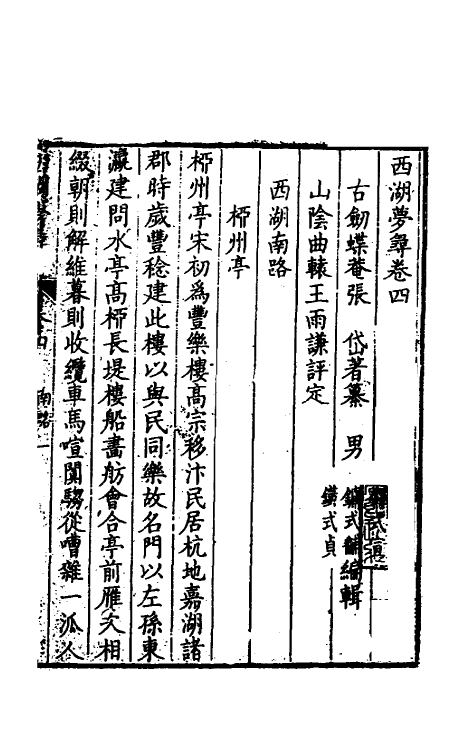 西湖夢尋卷四
古劒蝶菴張　岱著纂　男　鑣式編輯
鐄式貞
山陰曲轅王雨謙評定
西湖南路
栁州亭
栁州亭宋初爲豐樂樓髙宗移汴民居杭地嘉湖諸
郡時歲豐稔建此樓以與民同樂故名門以左孫東
瀛建問水亭髙栁長堤樓船畫舫會合亭前雁次相
綴朝則解維暮則收纜車馬喧闐騶從嘈雜一派人
南路
一